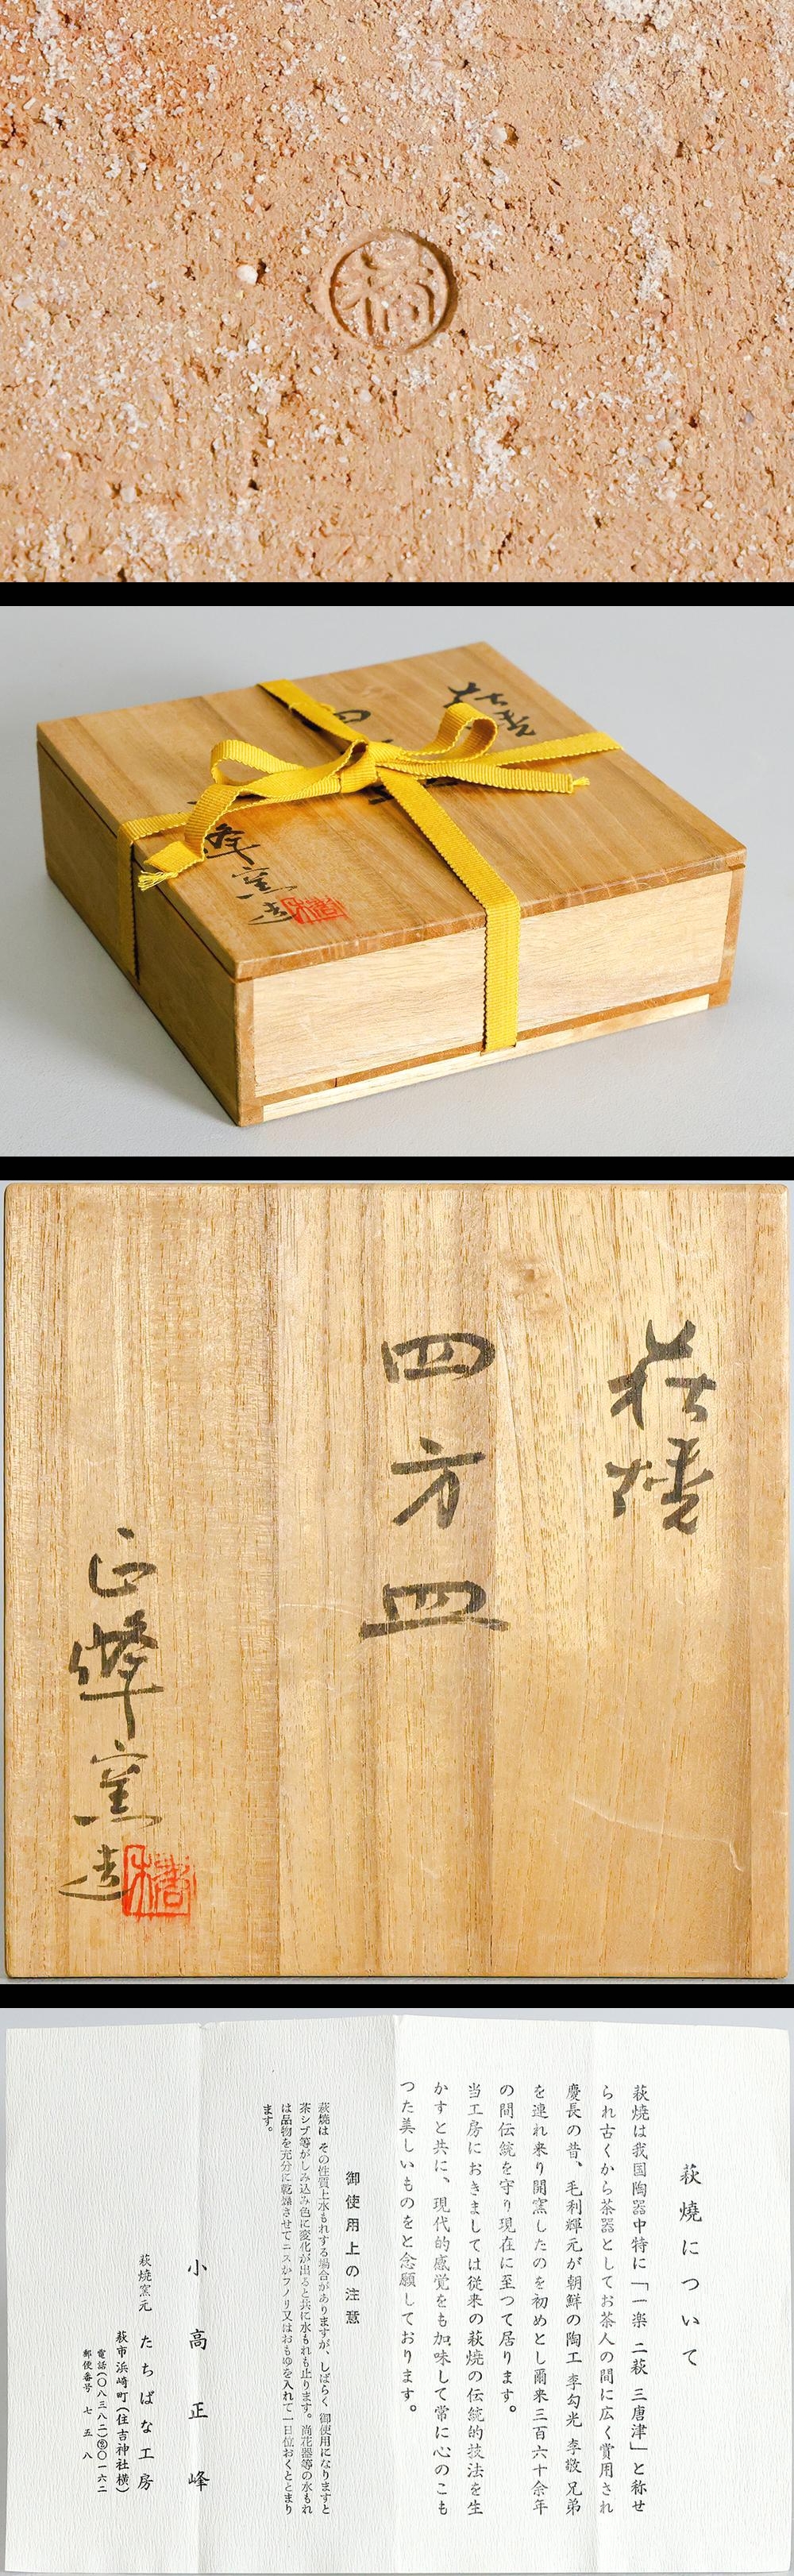 橘
萩焼
四方皿
正峰窯造
橘
萩燒について
萩焼は我国陶器中特に「一楽 二萩 三唐津」と称せ
られ古くから茶器としてお茶人の間に広く賞用され
慶長の昔、毛利輝元が朝鮮の陶工 李勾光 李敬 兄弟
を連れ来り開窯したのを初めとし爾来三百六十余年
の間伝統を守り現在に至つて居ります。
当工房におきましては従来の萩焼の伝統的技法を生
かすと共に、現代的感覚をも加味して常に心のこも
つた美しいものをと念願しております。
御使用上の注意
萩焼は その性質上水もれする場合がありますが、しばらく 御使用になりますと
茶シブ等がしみ込み色に変化が出ると共に水もれも止ります。尚花器等の水もれ
は品物を充分に乾燥させてニスかフノリ又はおもゆを入れて一日位おくととまり
ます。
小高正峰
萩焼窯元 たちばな工房
萩市浜崎町(住吉神社横)
電話(〇八三八二)②〇一六二
郵便番号 七五八